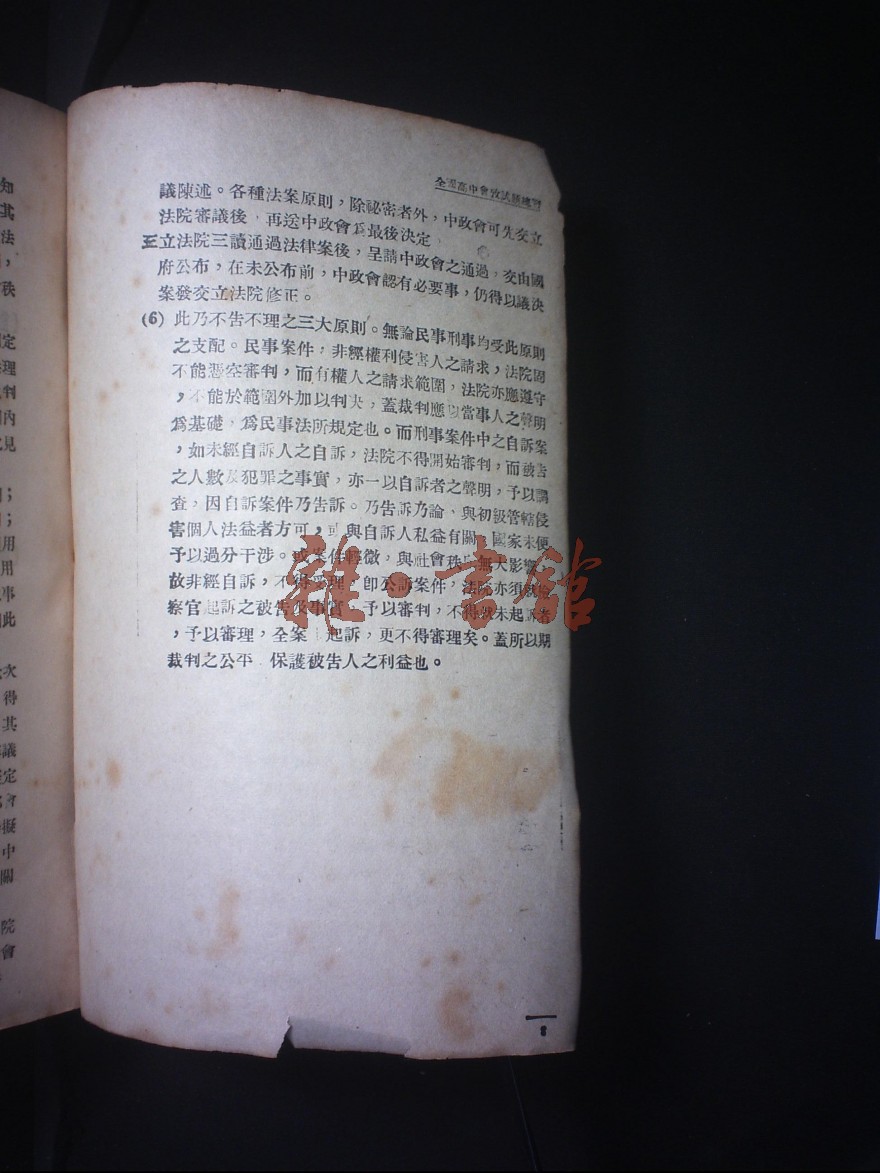 全國高中會攷試題總覽
議陳述。各種法案原則，除祕密者外，中政會可先交立
法院審議後，再送中政會爲最後決定，
王立法院三讀通過法律案後，呈請中政會之通過，交由國
府公布，在未公布前，中政會認有必要事，仍得以議決
案發交立法院修正。
(6) 此乃不告不理之三大原則。無論民事刑事均受此原則
之支配。民事案件，非經權利侵害人之請求，法院固
不能憑空審判，而有權人之請求範圍，法院亦應遵守
，不能於範圍外加以判决，蓋裁判應以當事人之聲明
爲基礎，爲民事法所規定也。而刑事案件中之自訴案
，如未經自訴人之自訴，法院不得開始審判，而被告
之人數及犯罪之事實，亦一以自訴者之聲明，予以調
查，因自訴案件乃告訴。乃告訴乃論、與初級管轄侵
害個人法益者方可，或與自訴人私益有關，國家未便
予以過分干涉。或案件輕微，與社會秩 無大影響
故非經自訴，不得受理，卽公訴案件，法院亦須就檢
察官起訴之被告及事實。予以審判，不得就未起訴者
，予以審理，全案 起訴，更不得審理矣。蓋所以期
裁判之公平 保護被告人之利益也。
8
雜·書館
知
其
法
秩
定
理
判
內
見
；
；
用
用
事
此
次
得
其
議
定
會
擬
中
關
院
會